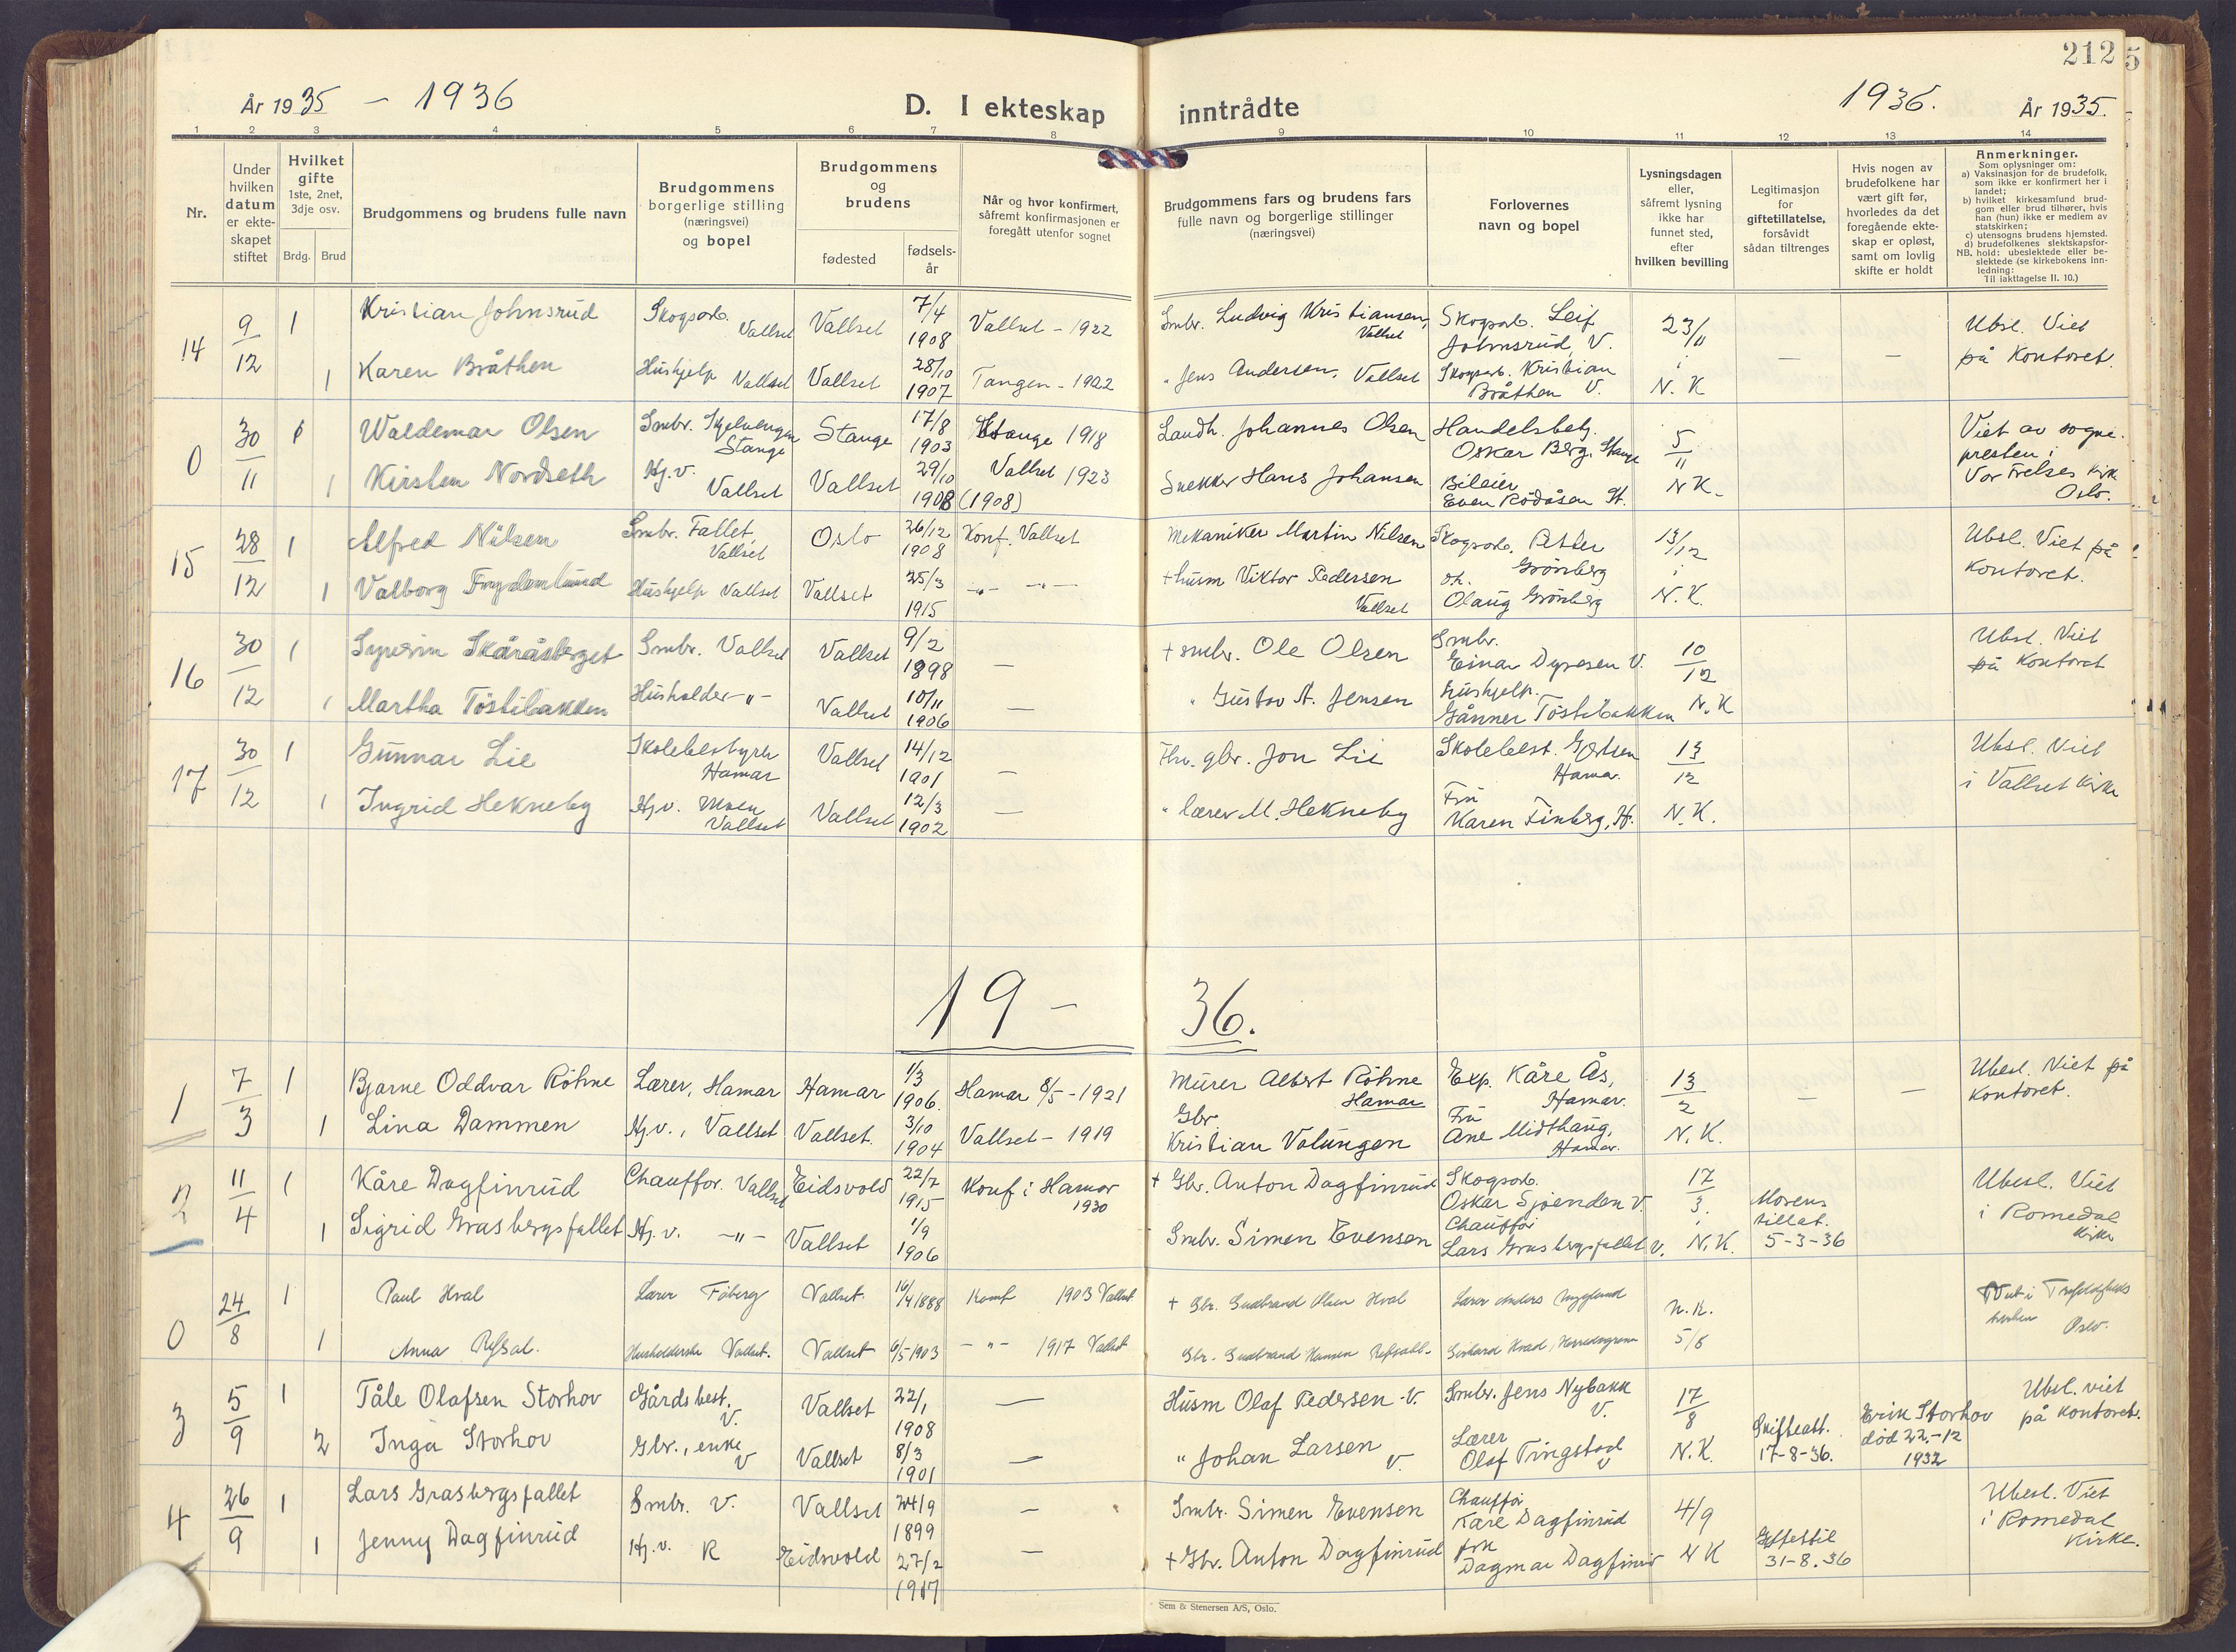 212
År 1935 – 1936
D. I ekteskap inntrådte
1936. År 1935.
1 2 3 4 5 6 7 8 9 10 11 12 13 14
Nr.
Under hvilken datum er ekteskapet stiftet
Hvilket gifte 1ste, 2net, 3dje osv.
Brdg. Brud
Brudgommens og brudens fulle navn
Brudgommens borgerlige stilling (næringsvei) og bopel
Brudgommens og brudens
fødested
fødsels-år
Når og hvor konfirmert, såfremt konfirmasjonen er foregått utenfor sognet
Brudgommens fars og brudens fars fulle navn og borgerlige stillinger (næringsvei)
Forlovernes navn og bopel
Lysningsdagen eller, såfremt lysning ikke har funnet sted, efter hvilken bevilling
Legitimasjon for giftetillatelse, forsåvidt sådan tiltrenges
Hvis nogen av brudefolkene har vært gift før, hvorledes da det foregående ekteskap er opløst, samt om lovlig skifte er holdt
Anmerkninger.
Som oplysninger om:
a) Vaksinasjon for de brudefolk, som ikke er konfirmert her i landet;
b) hvilket kirkesamfund brudgom eller brud tilhører, hvis han (hun) ikke er medlem av statskirken;
c) utensogns brudens hjemsted.
d) brudefolkenes slektskapsforhold: ubeslektede eller beslektede (se kirkebokens innledning:
NB. Til iakttagelse II. 10.)
14 9/12 1 Kristian Johnsrud Skogsarb. Vallset Vallset 7/4 1908 Vallset - 1922 Smbr. Ludvig Kristiansen, Vallset Skogsarb. Leif Johnsrud, V. 23/11 — — Ubsl. Viet på Kontoret.
1 Karen Bråthen Hushjelp Vallset Vallset 28/10 1907 Tangen - 1922 " Jens Andersen, Vallset Skogsarb. Kristian Bråthen V. i N.K
0 30/11 1 Waldemar Olsen Smbr. Stange Stange 17/8 1903 Stange 1918 Landh. Johannes Olsen Handelsbetj. Oskar Berg, Stange 5/11 Viet av sognepresten i Vor Frelses Kirke Oslo.
1 Kirsten Nordseth Hj.v. Vallset Vallset 29/10 1908 (1908) Vallset 1923 Snekker Hans Johansen Bileier Even Rödåsen St. N K.
15 28/12 1 Alfred Nilsen Smbr. Fallet, Vallset Oslo 26/12 1908 Konf. Vallset Mekaniker Martin Nilsen Skogsarb. Petter Grönberg 13/12 Ubsl. Viet på kontoret.
1 Valborg Frydenlund Hushjelp Vallset Vallset 25/3 1915 -"- -"- + husm Viktor Pedersen Vallset og. Olaug Grönberg i N.K.
16 30/12 1 Syverin Skåråsberget Smbr. Vallset Vallset 9/2 1898 — + smbr. Ole Olsen Smbr. Einar Dyresen V. 10/12 Ubsl. Viet på Kontoret
1 Martha Töstibakken Husholder -"- Vallset 10/11 1906 — " Gustav A. Jensen Hushjelp. Gånner Töstibakken N.K
17 30/12 1 Gunnar Lie Skolebestyrer Hamar Vallset 14/12 1901 — Fhv. gbr. Jon Lie Skolebest. Gjertsen Hamar. 13/12 Ubsl. Viet i Vallset Kirke
1 Ingrid Hekneby Hj.v. Moen Vallset Vallset 12/3 1902 — " lærer M. Hekneby Fru Karen Finberg, H. N.K.
19 – 36.
1 7/3 1 Bjarne Oddvar Röhne Lærer, Hamar Hamar 1/3 1906. Hamar 8/5 - 1921 Murer Albert Röhne Hamar Exp. Kåre Ås, Hamar. 13/2 — — Ubesl. Viet på Kontoret.
1 Lina Dammen Hj.v., Vallset Vallset. 3/10 1904 Vallset - 1919 Gbr. Kristian Volungen Fru Ane Midthaug, Hamar. N.K.
2 11/4 1 Kåre Dagfinrud Chauffør. Vallset Eidsvold 22/7 1915 Konf i Hamar 1930 + Gbr. Anton Dagfinrud Skogsarb. Oskar Sjöenden V. 17/3. Ubesl. Viet i Romedal Kirke
1 Sigrid Grasbergsfallet Hj.v. -"- Vallset 1/9 1906 Smbr. Simen Evensen Chauffør Lars Grasbergsfallet V. i N.K. Morens tillat. 5-3-36
0 24/8 1 Paul Hval Lærer Fåberg Vallset. 16/4 1888 Konf 1903 Vallset + Gbr. Gudbrand Olsen Hval Lærer Anders N.K. Viet i Trefoldigheds kirken Oslo.
1 Anna Refsal. Husholderske Vallset. Vallset 6/5 1903 -"- 1917 Vallset Gbr. Gudbrand Hansen Refsal. 5/8
3 5/9 1 Tåle Olafsen Storhov Gårdsbest. V. Vallset 22/1 1908 — Husm Olaf Pedersen - V. Smbr. Jens Nybakk V. 17/8 Ubsl. viet på kontoret.
2 Inga Storhov Gbr., enke V Vallset 8/3 1901 — " Johan Larsen V. Lærer Olaf Tingstad V N.K. Skifteatt. 17-8-36. Erik Storhov död 22-12 1932
4 26/9 1 Lars Grasbergsfallet Smbr. V. Vallset 24/9 1899 — Smbr. Simen Evensen Chauffør Kåre Dagfinrud 4/9 Ubesl. Viet i Romedal Kirke.
1 Jenny Dagfinrud Hj.v. R Eidsvold 27/2 1917 — + Gbr. Anton Dagfinrud frk Dagmar Dagfinrud N K 31-8.36
Sem & Stenersen A/S, Oslo.